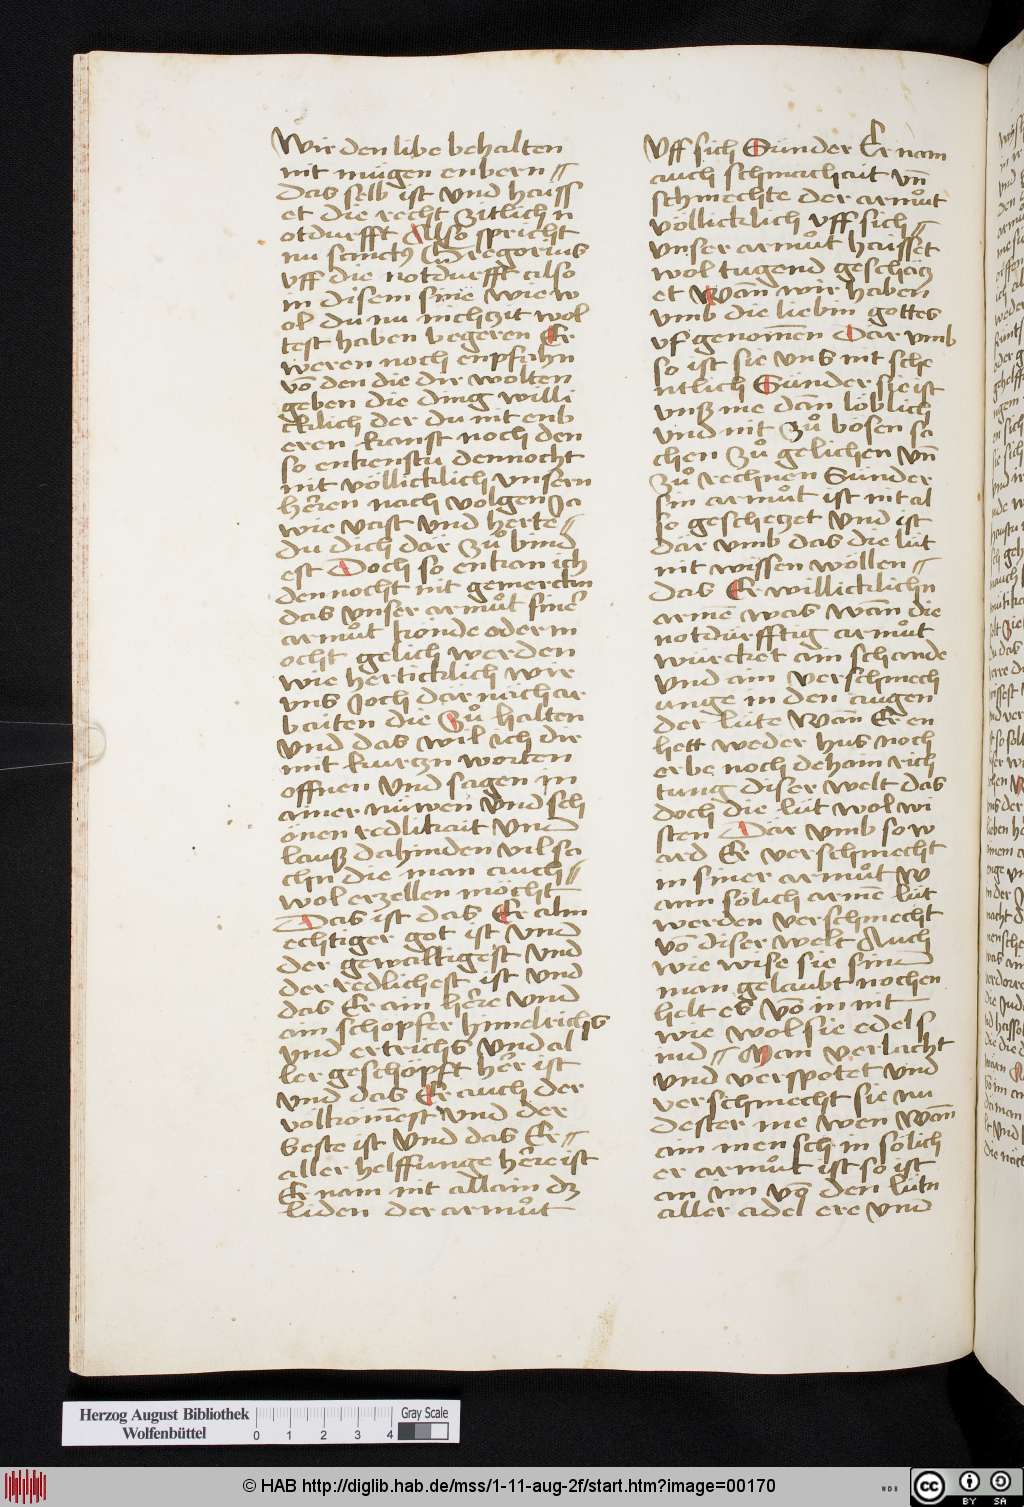 Wir den libe behalten
nit mügen enbern //
das selb ist vnd haiss
et die recht zitlich n
otdurfft Also spricht
nu sanctus Gregorius
vff die notdurfft also
in disem sine wie w
ol du nu nichczit wol
test haben begeren Er
weren noch enpfahn
vō den die dir wolten
geben die ding willi
cklich der du nit enb
eren kanst noch den
so entkenstu dennocht
nit völlicklich vnsern
heren nach volgen Ja
wie vast vnd herte //
du dich dar zuͦ bind
est Doch so enkan ich
dennocht nit gemercken
das vnser armuͦt siner
armuͦt könde oder m
öcht gelich werden
wie herticklich wir
vns Joch dar nach ar
baiten die zuͦ halten
vnd das wil ich dir
mit kurczn worten
offnen vnd sagen in
ainer nüwen vnd sch
önen redlikait vnd
lauß dahinden vil sa
chn die man auch //
wol erzellen möcht
Das ist das Er alm
echtiger got ist vnd
der gewaltigest vnd
der redlichest ist vnd
das Er ain here vnd
ain schopfer himelrichs
vnd ertrichs vnd al
ler geschöpft her ist
vnd das Er auch der
volkom̄est vnd der
beste ist vnd das Er //
aller helffunge here ist
Er nam nit allain dz
liden der armuͦt
vff sich Sunder Er nam
auch schmachait vn̄
schmechte der armuͦt
völlicklich vff sich //
vnser armuͦt haisset
wol tugend geschäcz
et Wan̄ wir haben
vmb die liebin gottes
vf genom̄en Dar vmb
so ist sie vns nit sche
ntlich Sunder sie ist
vnß me dan̄ löblich
vnd nit zuͦ bösen sa
chen zuͦ gelichen vn̄
zuͦ rechnen Sunder
sin armuͦt ist nit al
so geschetzet vnd ist
dar vmb das die lüt
nit wissen wöllen //
das Er willicklichn
arm̄e was wan̄ die
notdürfftig armuͦt
würcket ain schande
vnd ain verschmech
unge in den augen
der lüte Wan̄ Er en
hett weder hus noch
erbe noch dehain rich
tung diser welt das
doch die lüt wol wi
sten Dar vmb so w
ard Er verschmecht
in siner armuͦt w
ann sölich arm̄e lüt
werden verschmecht
vō diser welt Auch
wie wise sie sind
man gelaubt noch en
helt es vō in nit
wie wol sie edel s
nd // Man verlacht
vnd verspotet vnd
verschmecht sie nu
dester me wen Wan̄
ain mensch in sölich
er armuͦt ist so ist
an im vor den lütn
aller adel ere vnd
Herzog August Bibliothek
Wolfenbüttel
0 1 2 3 4
Gray Scale
© HAB http://diglib.hab.de/mss/1-11-aug-2f/start.htm?image=00170
WDB
cc BY SA